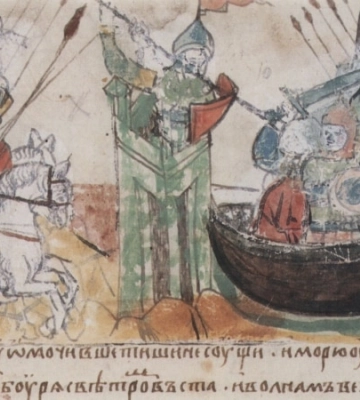 ѡмочивши тишине соущи · и морю
боурѧ свѣтроⷨ въста · и волнамъ ве